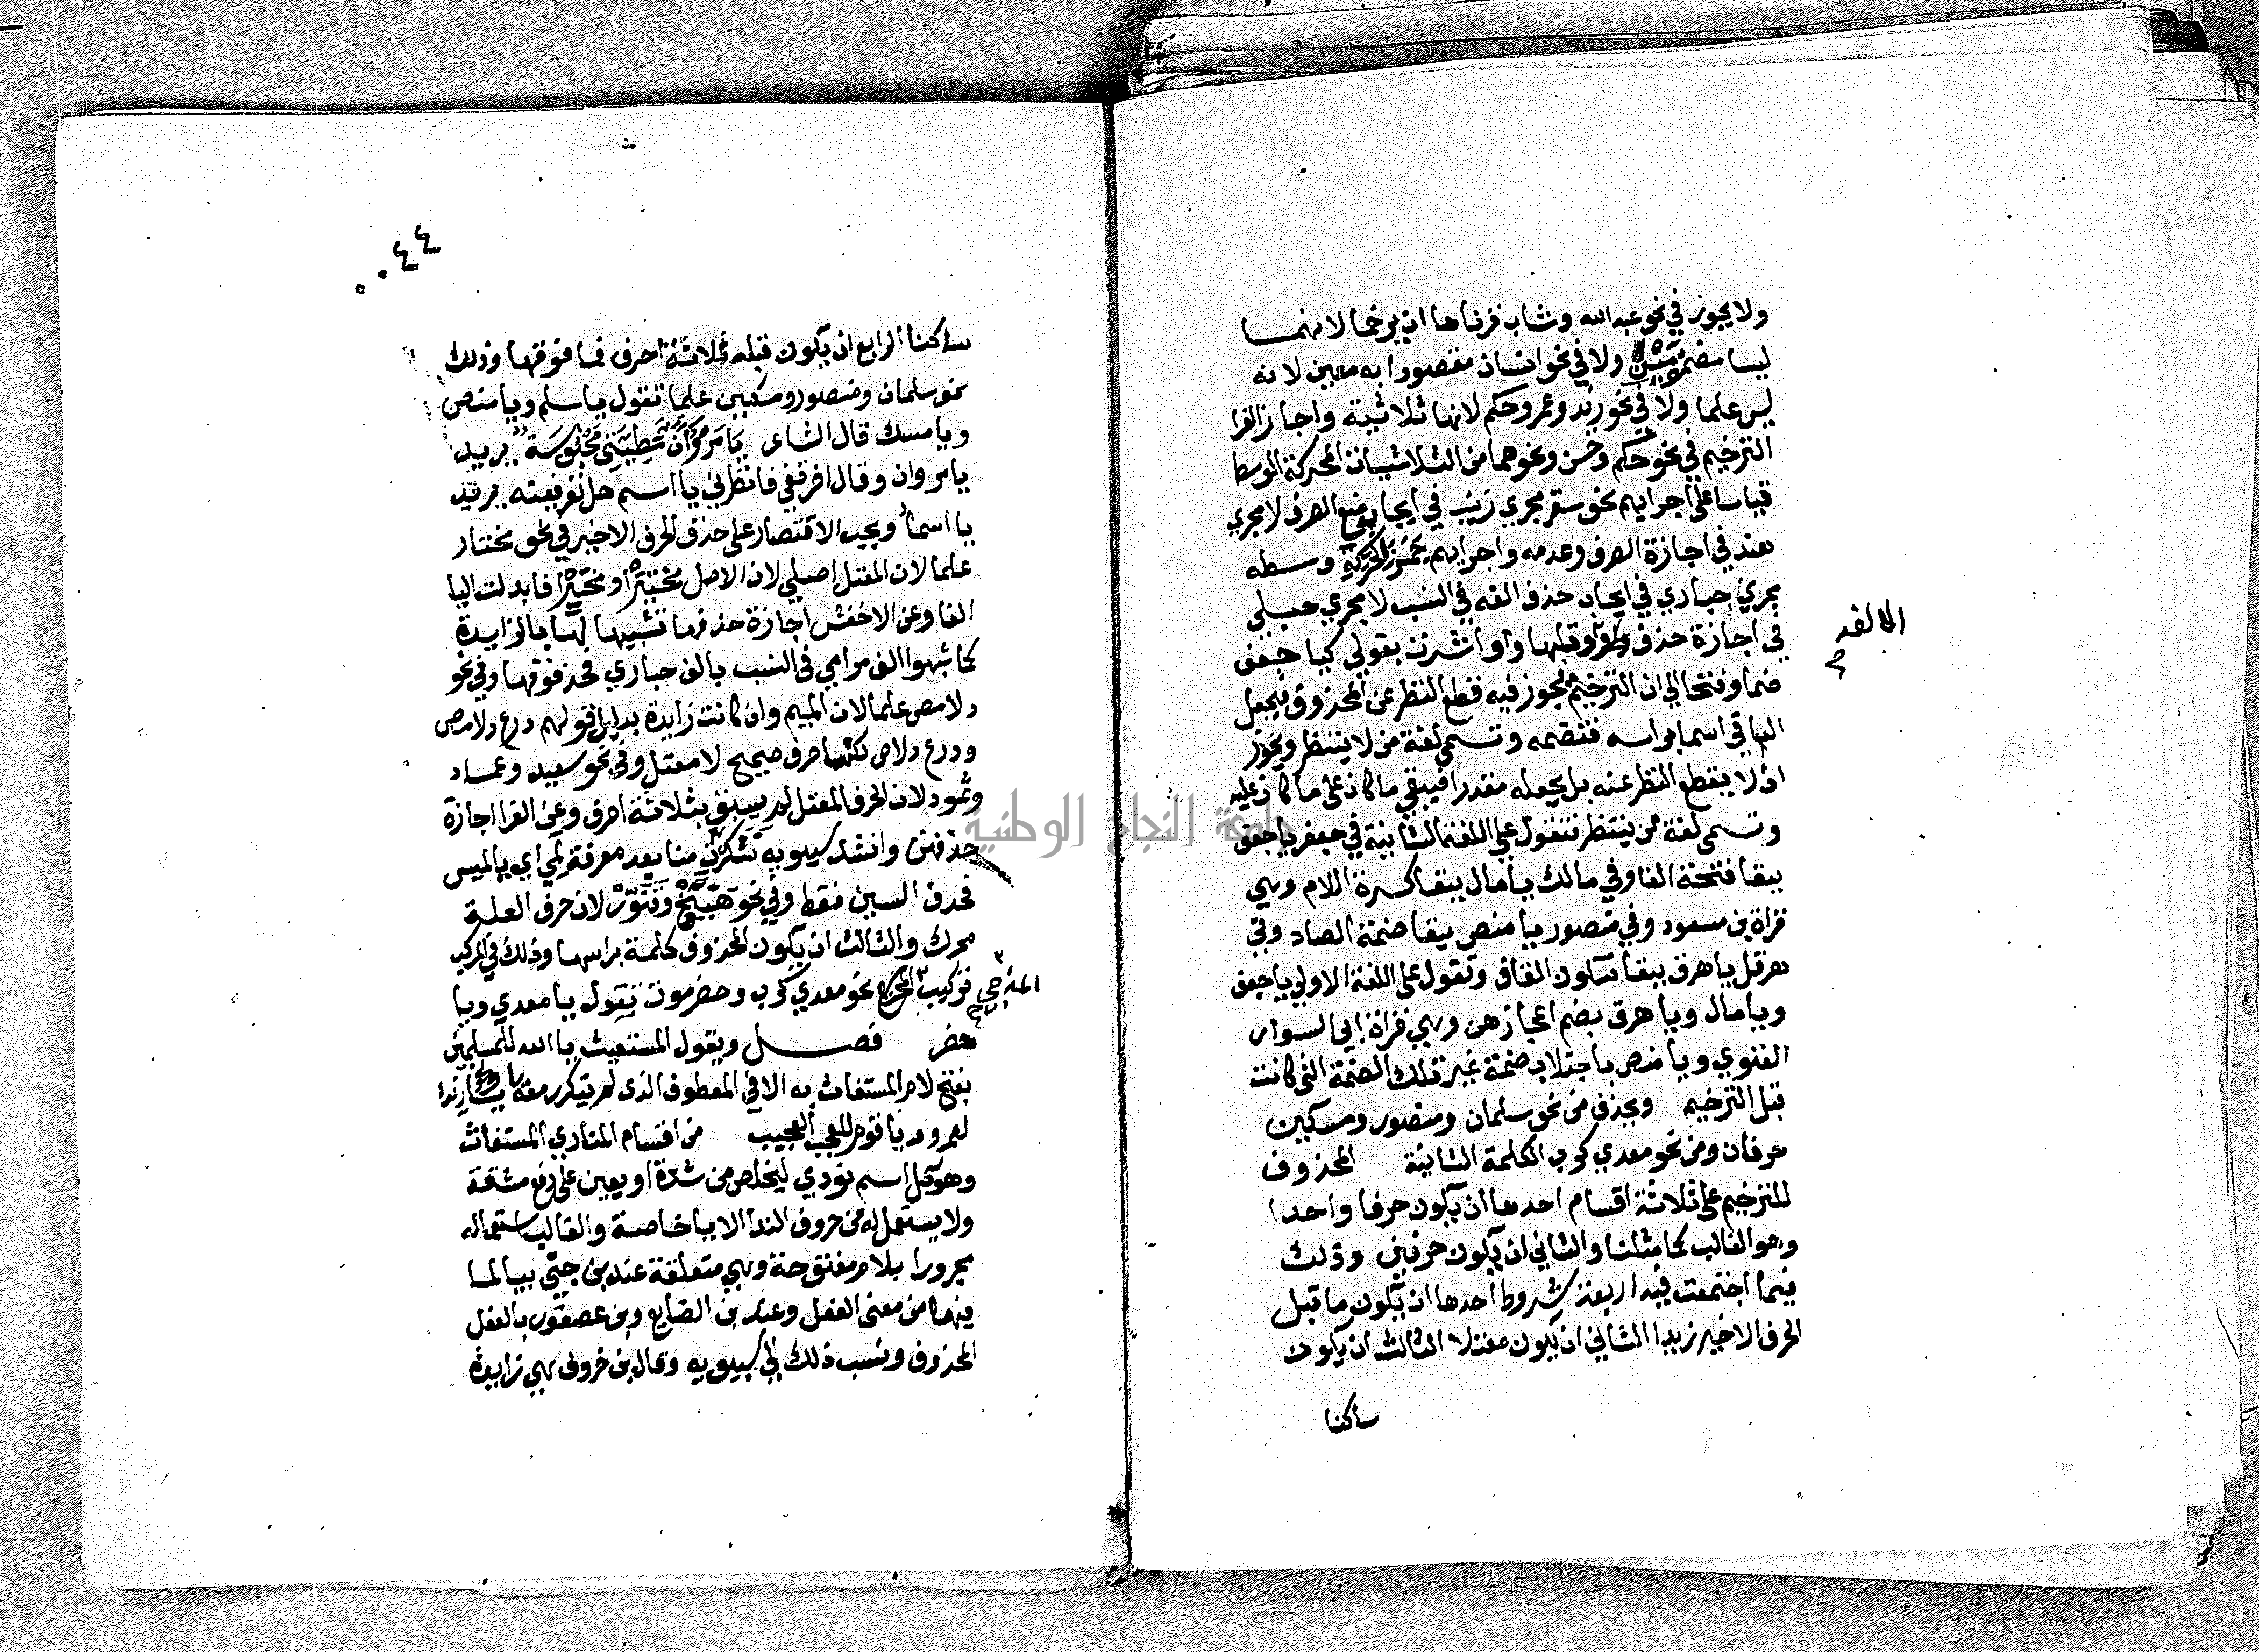 ولا يجوز في نحو عبد الله وشاب قرناها ان يرخما لانهما
ليسا مضمومين ولا في نحو انسان مقصودا به معين لانه
ليس علما ولا في نحو زيد وعمرو وحكم لانها ثلاثية واجاز الفرا
الترخيم في نحو حكم وحسن ونحوهما من الثلاثيات المحركة الوسط
قياسا على اجرايهم نحو سقر مجري زينب في ايجاب منع الصرف لا مجري
هند في اجازة الصرف وعدمه واجرايهم جمزي لحركة وسطه
مجري حباري في ايجاب حذف الفه في النسب لا مجري حبلي
في اجازة حذف وقلبها واوا اشرت بقولي كيا جعف
الالف
ضما وفتحا الي ان الترخيم يجوز فيه قطع النظر عن المحذوف فيجعل
الباقي اسما براسه فتضمه وتسمي لغة من لا ينتظر ويجوز
ان لا يقطع النظر عنه بل يجعله مقدرا فيبقي ما كان على ما كان عليه
وتسمي لغة من ينتظر فتقول على اللغة الثانية في جعفر يا جعف
ببقا فتحة الفا وفي مالك يا مال ببقا كسرة اللام وهي
قراة بن مسعود وفي منصور يا منص ببقا ضمة الصاد وفي
هرقل يا هرق ببقا سكون القاف وتقول على اللغة الاولي يا جعف
ويا مال ويا هرق بضم اعجازهن وهي قراة ابي السوار
الغنوي ويا منص باجتلاب ضمة غير تلك الضمة التي كانت
قبل الترخيم ويحذف من نحو سلمان ومنصور ومسكين
حرفان ومن نحو معدي كرب الكلمة الثانية المحذوف
للترخيم على ثلاثة اقسام احدها ان يكون حرفا واحدا
وهو الغالب كما مثلنا والثاني ان يكون حرفين وذلك
فيما اجتمعت فيه اربعة شروط احدها ان يكون ما قبل
الحرف الاخير زيدا الثاني ان يكون معتلا الثالث ان يكون
ساكنا
٤٤
ساكنا الرابع ان يكون قبله ثلاثة احرف فما فوقها وذلك
نحو سلمان ومنصور ومسكين علما تقول يا سلم ويا منص
ويا مسك قال الشاعر يَا مَرْوَ اِنَّ مَطِيَّتِي مَحْبُوسَة يريد
يا مروان وقال اخر قفي فانظري يا اسم هل تعرفينه يريد
يا اسما ويجب الاقتصار على حذف الحرف الاخير في نحو مختار
علما لان المعتل اصلي لان الاصل مختيرا او مختيرا فابدلت اليا
الفا وعن الاخفش اجازة حذفها تشبيها لها بالزايدة
كما شبهوا الف مرامي في النسب بالف حباري فحذفوها وفي نحو
دلامص علما لان الميم وان كانت زايدة بدليل قولهم درع دلامص
ودرع دلاص لكنها حرف صحيح لا معتل وفي نحو سعيد وعماد
وثمود لان الحرف المعتل لم يسبق بثلاثة احرف وعن الفرا اجازة
حذفهن وانشد سيبويه تنكرت منا بعد معرفة لمي اي يا لميس
فحذف السين فقط وفي نحو هَبَيَّخ وقَنَوَّر لان حرف العلة
محرك والثالث ان يكون المحذوف كلمة براسها وذلك في المركب
تركيب المزج نحو معدي كرب وحضرموت تقول يا معدي ويا
المزجي
حضر فصل ويقول المستغيث يا الله للمسلمين
بفتح لام المستغاث به الا في المعطوف الذي لم يتكرر معه يا ويا زيدا
لعمرو ويا قوم للعجب العجيب من اقسام المنادي المستغاث
وهو كل اسم نودي ليخلص من شدة او يعين على دفع مشقة
ولا يستعمل له من حروف الندا الا يا خاصة والغالب استعماله
مجرورا بلام مفتوحة وهي متعلقة عند بن جني بيا لما
فيها من معنى الفعل وعند بن الضايع وبن عصفور بالفعل
المحذوف ونسب ذلك الي سيبويه وقال بن خروف هي زايدة
جامعة النجاح الوطنية